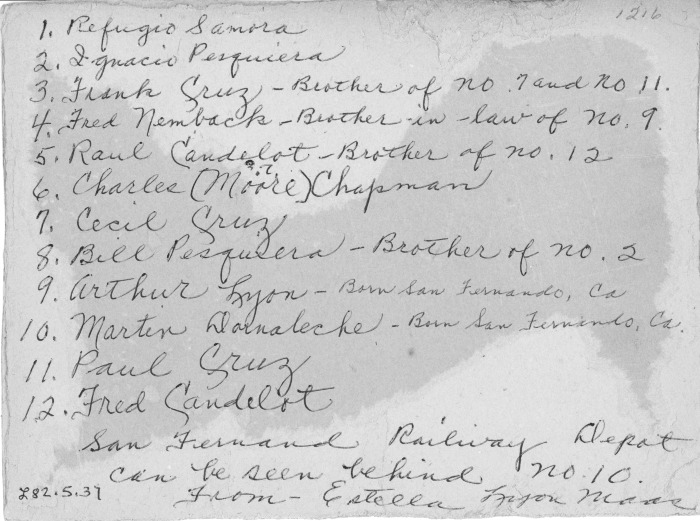 1216
1. Refugio Samora
2. Ignacio Pesquiera
3. Frank Cruz - Brother of no. 7 and No 11.
4. Fred Nemback - Brother-in-law of no. 9.
5. Raul Candelot - Brother of no. 12
6. Charles (Moore) Chapman
7. Cecil Cruz
8. Bill Pesquiera - Brother of no. 2
9. Arthur Lyon - Born San Fernando, Ca
10. Martin Darnaleche - Born San Fernando, Ca.
11. Paul Cruz
12. Fred Candelot
San Fernand Railway Depot
can be seen behind no. 10.
282.5.37
From - Estella Lyon Maas